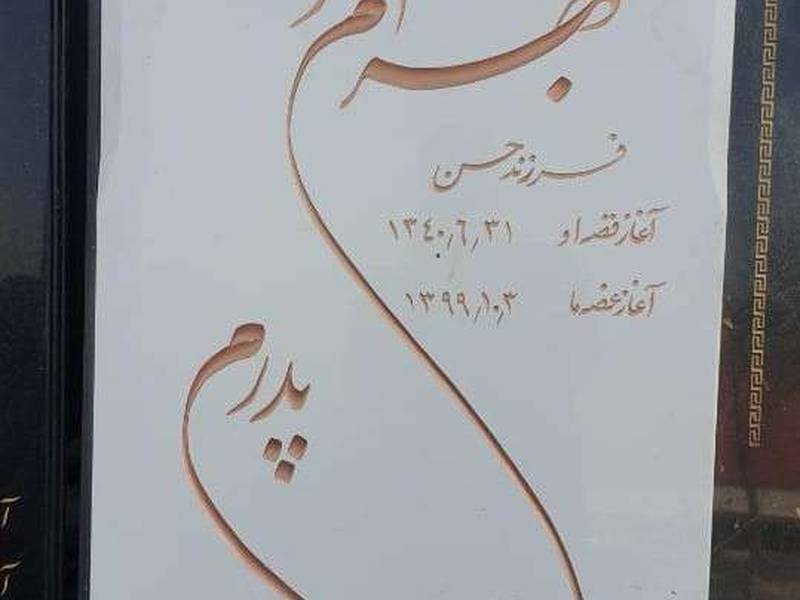 فرزند حسن
آغاز قصه او ۱۳۴۰٫۶٫۳۱
آغاز غصه ما ۱۳۹۹٫۱۰٫۳
پدرم